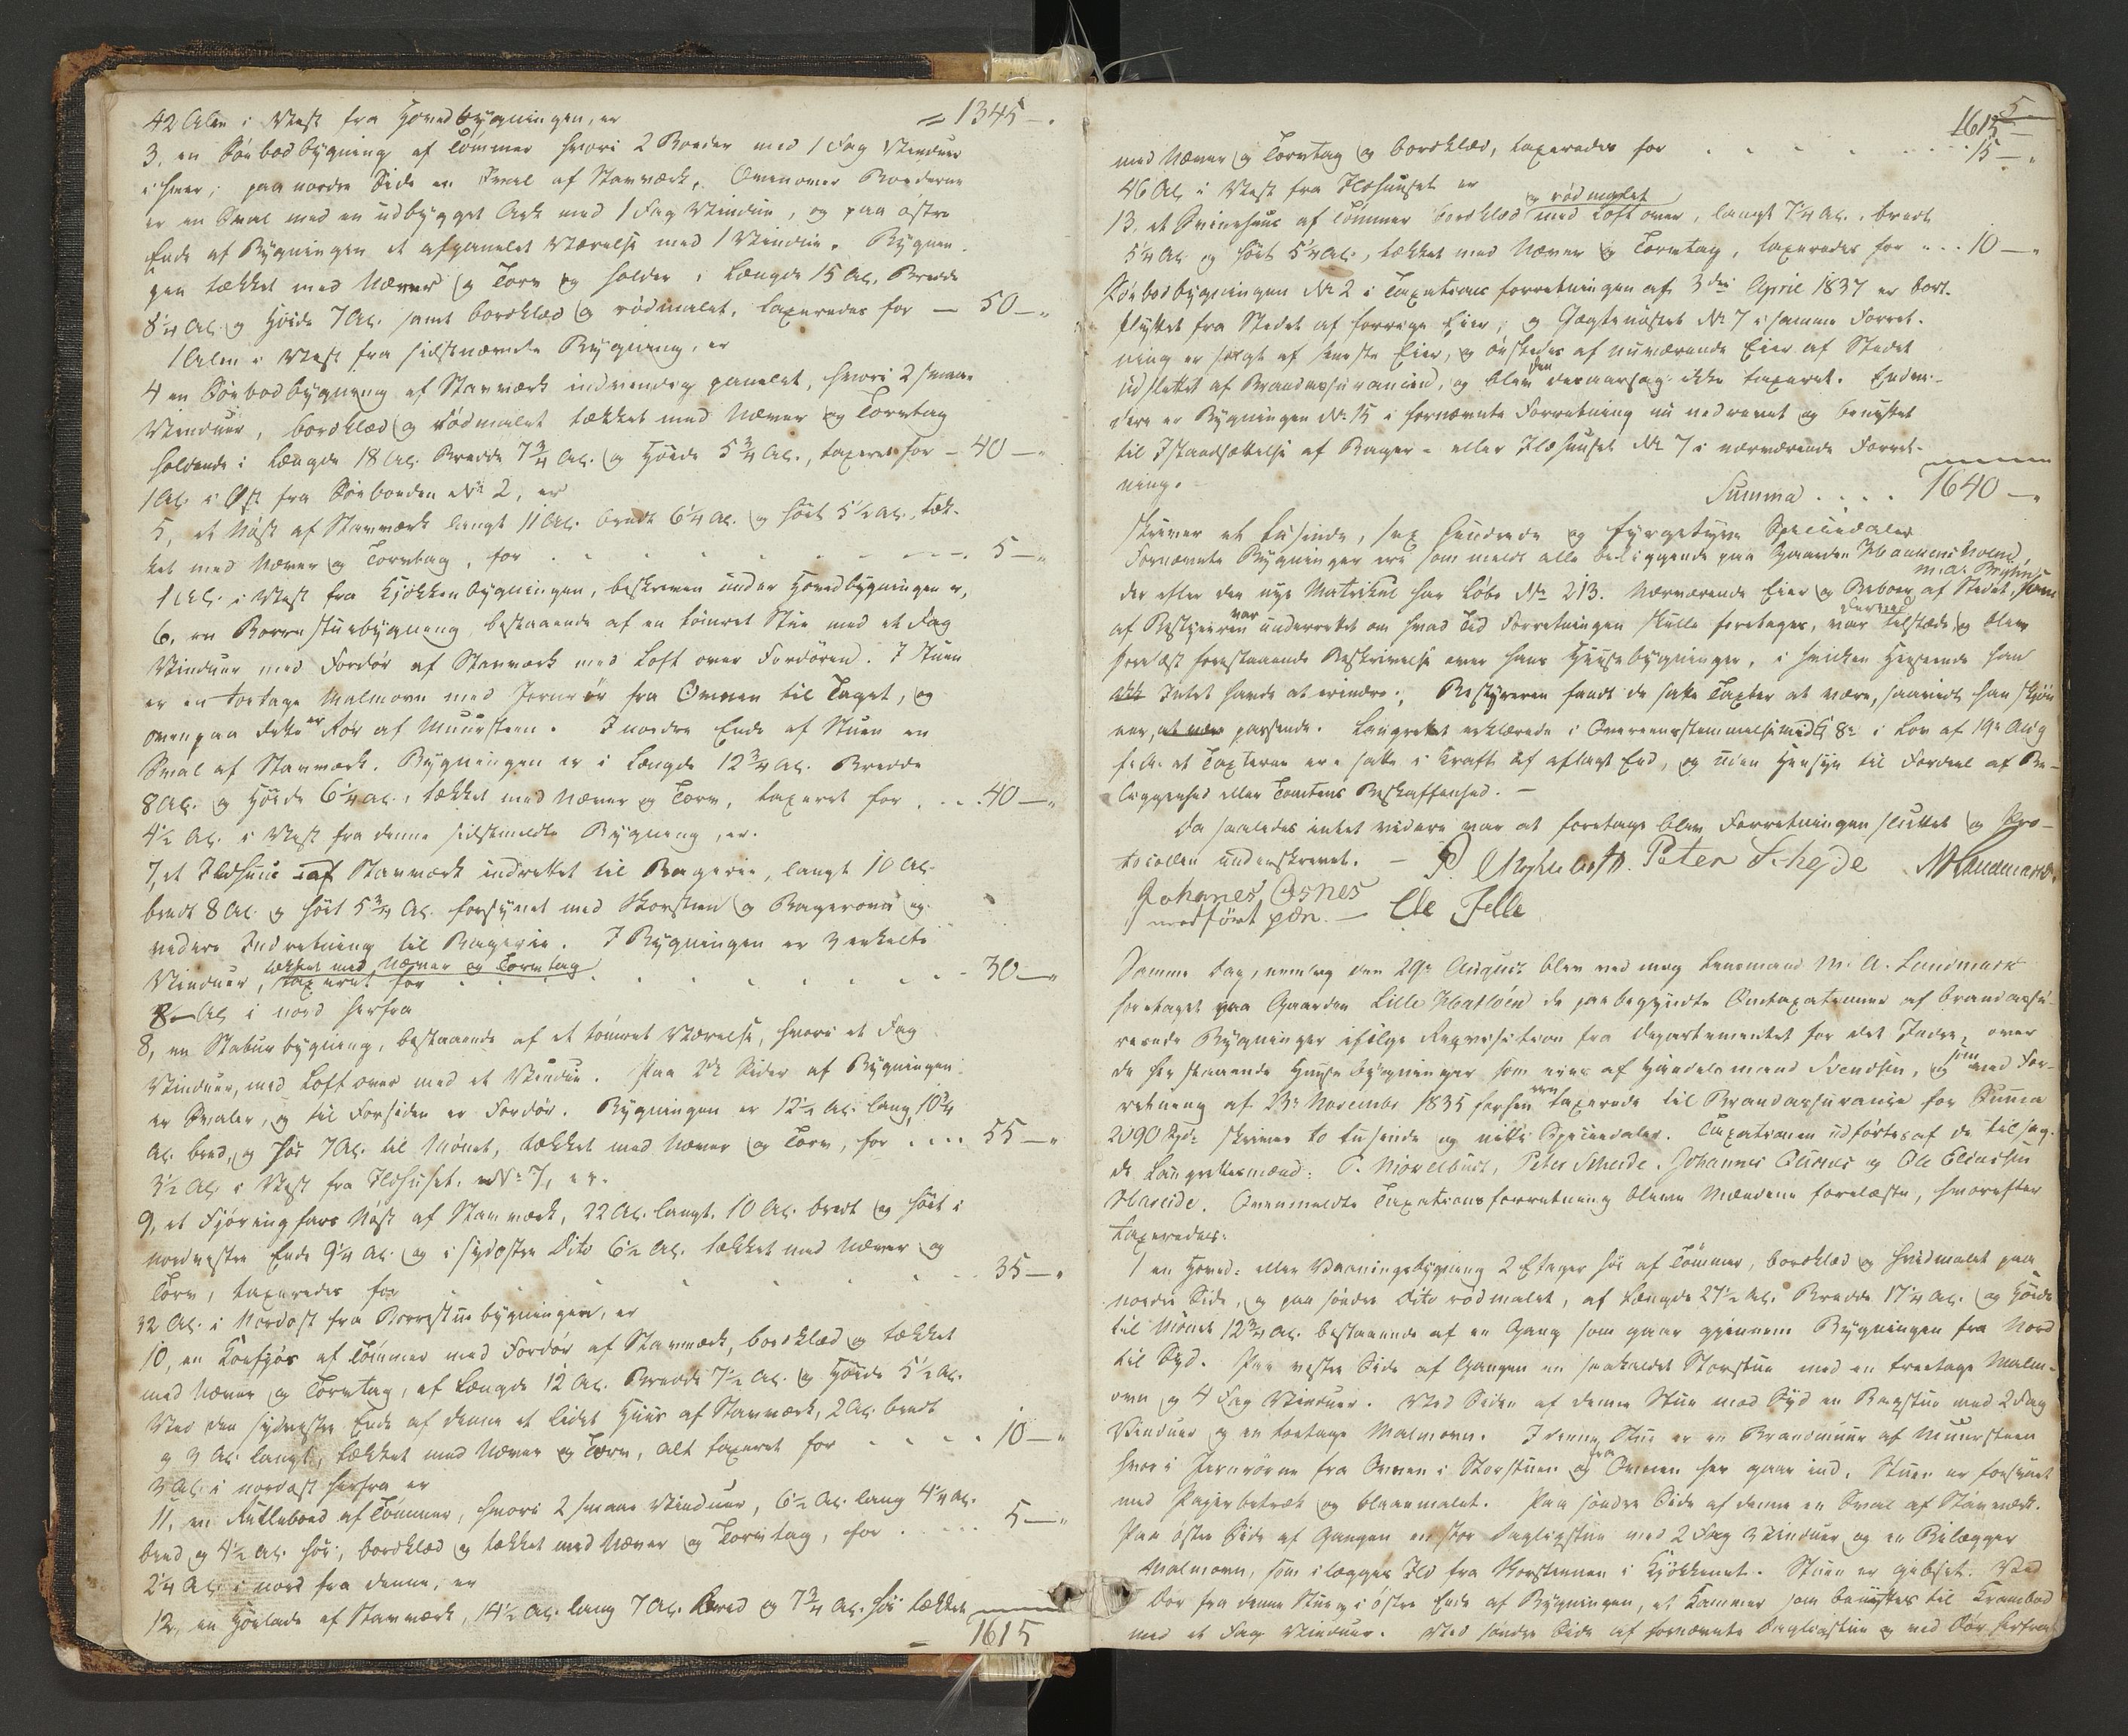 42 Alen i Vest fra Hovedbygningen, er = 1345 –.
3, en Søebodbygning af Tømmer hvori 2 Boeder med 1 Fag Vinduer
i hver; paa nordre Side en Sval af Stavværk. Ovenover Boederne
er en Sval med en udbygget Ark med 1 Fag Vindue, og paa østre
Ende af Bygningen et afpanelet Værelse med 1 Vindue. Bygnin-
gen tækket med Næver og Torv og holder i Længde 15 Al. Bredde
8 1/4 Al. og Høide 7 Al. samt bordklæd og rødmalet, taxeredes for – 50 – "
1 Alen i Vest fra sidstnævnte Bygning, er
4 en Søebodbygning af Stavværk indvendig panelet, hvori 2 smaa
Vinduer, bordklæd og rødmalet tækket med Næver og Torvtag
holdende i Længde 18 Al. Bredde 7 3/4 Al. og Høide 5 3/4 Al., taxeret for – 40 – "
1 Al. i Øst fra Søeboden No 2, er
5, et Nøst af Stavværk langt 11 Al. bredt 6 1/4 Al. og høit 5 1/2 Al., tæk-
ket med Næver og Torvtag, for . . . . . 5 – "
1 Al. i Vest fra Kjøkkenbygningen, beskreven under Hovedbygningen er,
6, en Borrestuebygning bestaaende af en tømret Stue med et Fag
Vinduer med Fordør af Stavværk med Loft over Fordøren. I Stuen
er en toetages Malmovn med Jernrør fra Ovnen til Taget, og
ovenpaa dette er Rør af Muursteen. I nordre Ende af Stuen en
Sval af Stavværk. Bygningen er i Længde 12 3/4 Al. Bredde
8 Al. og Høide 6 1/4 Al., tækket med Næver og Torv, taxeret for . . . 40 – "
4 1/2 Al. i Vest fra denne sidstmeldte Bygning, er.
7, et Ildhuus af Stavværk indrettet til Bagerie, langt 10 Al.
bredt 8 Al. og høit 5 3/4 Al. forsynet med Skorsteen og Bagerovn og
videre Indretning til Bagerie. I Bygningen er 3 enkelte
Vinduer, tækket med Næver og Torvtag taxeret for . . . . . 30 – "
8 Al. i nord herfra
8, en Stabuurbygning, bestaaende af et tømret Værelse, hvori et Fag
Vinduer, med Loft over med et Vindue. Paa 2de Sider af Bygningen
er Svaler, og til Forsiden er Fordør. Bygningen er 12 1/4 Al. lang, 10 3/4
Al. bred, og høi 7 Al. til Mønet, tækket med Næver og Torv, for . . . . 55 – "
3 1/2 Al. i Vest fra Ildhuset No 7, er.
9, et Fjøringfars Nøst af Stavværk, 22 Al. langt. 10 Al. bredt og høit i
nordvestre Ende 9 1/4 Al. og i sydøstre Dito 6 1/2 Al. tækket med Næver og
Torv, taxeredes for . . . . . 35 – "
32 Al. i Nordost fra Borrestuebygningen, er
10, en Koefjøs af Tømmer med Fordør af Stavværk, bordklæd og tækket
med Næver og Torvtag, af Længde 12 Al. Bredde 7 1/2 Al. og Høide 5 1/2 Al.
Ved den sydvestre Ende af denne et lidet Huus af Stavværk, 2 Al. bredt
og 3 Al. langt, tækket med Næver og Torv, alt taxeret for . . . . 10 – "
3 Al. i nordost herfra er
11, en Rulleboed af Tømmer, hvori 2 smaae Vinduer, 6 1/2 Al. lang 4 1/4 Al.
bred og 4 1/2 Al. høi, bordklæd og tækket med Næver og Torvtag, for . . . . 5 – "
2 1/4 Al. i nord fra denne, er
12, en Høelade af Stavværk, 14 1/2 Al. lang 7 Al. bred og 7 3/4 Al. høi tækket
= 1615
5
1615 –
med Næver og Torvtag og bordklæd, taxeredes for . . . . . 15 – "
46 Al. i Vest fra Ildhuuset er
13, et Svinehuus af Tømmer bordklæd og rødmalet med Loft over, langt 7 1/4 Al., bredt
5 1/4 Al. og høit 5 1/4 Al., tækket med Næver og Torvtag, taxeredes for . . . 10 – "
Søebodbygningen No 2 i Taxations forretningen af 3die April 1837 er bort-
flyttet fra Stedet af forrige Eier, og Jægtenøstet No 7 i samme Forret-
ning er solgt af seneste Eier, og ønskedes af nuværende Eier af Stedet
udslettet af Brandassurancen, og blev den desaarsag ikke taxeret. Endvi-
dere er Bygningen No 15 i fornævnte Forretning nu nedrevet og benyttet
til Istandsættelse af Bager- eller Ildhuuset No 7 i nærværende Forret-
ning. Summa . . . . 1640 – "
skriver et tusinde, sex hundrede og fyrgetyve Speciedaler
Fornævnte Bygninger ere som meldt alle beliggende paa Gaarden
der efter den nye Matrikul har Løbe No 213. Nærværende Eier og Beboer af Stedet, som
af Bestyreren var underrettet om hvad Tid Forretningen skulle foretages, var derved tilstæde og blev
forelæst forestaaende Beskrivelse over hans Huusebygninger, i hvilken Henseende han
Intet havde at erindre; Bestyreren fandt de satte Taxter at være, saavidt han skjøn-
ner, passende. Laugrettet erklærede i Overeensstemmelse med § 8 i Lov af 19de Aug
f. A. at Taxterne ere satte i Kraft af aflagt Eed, og uden Hensyn til Fordeel af Be-
liggenhed eller Tomtens Beskaffenhed. –
Da saaledes intet videre var at foretage blev Forretningen sluttet og Pro-
tocollen underskrevet. – P. Peter Schejde MLandmark.
Johanes Osnes
medført pen. – Ole Jelle
Samme Dag, nemlig den 29de August blev ved mig Lensmand M. A. Landmark
foretaget paa Gaarden Lille de paabegyndte Omtaxationer af brandassu-
rerede Bygninger ifølge Reqvisition fra Departementet for det Indre, over
de her staaende Huusebygninger som eies af Handelsmand Svendsen, og som ved For-
retning af 23de Novembr 1835 forhen ere taxerede til Brandassurance for Summa
2090 Spd: skriver to tusinde og nitti Speciedaler. Taxationen udførtes af de tilsag-
de Laugrettesmænd: P. Peter Scheide, Johannes Osnes og Ole
Hareide. Ovenmeldte Taxationsforretning bleve Mændene forelæste, hvorefter
taxeredes:
1 en Hoved- eller Vaaningsbygning 2 Etager høi af Tømmer, bordklæd og hvidmalet paa
nordre Side, og paa søndre Dito rødmalet, af Længde 27 1/2 Al. Bredde 17 1/4 Al. og Høide
til Mønet 12 3/4 Al. bestaaende af en Gang som gaar gjennem Bygningen fra Nord
til Syd. Paa vestre Side af Gangen en saakaldet Storstue med en treetages Malm-
ovn og 4 Fag Vinduer. Ved Siden af denne Stue mod Syd en Bagstue med 2 Fag
Vinduer og en toetages Malmovn. I denne Stue er en Brandmuur af Muursteen
hvori Jernrørene fra Ovnen i Storstuen og fra Ovnen her gaar ind. Stuen er forsynet
med Papirbetræk og blaamalet. Paa søndre Side af denne en Sval af Stavværk.
Paa østre Side af Gangen en stor Dagligstue med 2 Fag Vinduer og en Bilægger
Malmovn, som ilægges Ild fra Skorstenen i Kjøkkenet. Stuen er gibset. Ved
Dør fra denne Stue i østre Ende af Bygningen, et Kammer som benyttes til Krambod
med et Fag Vinduer. Ved søndre Side af fornævnte Dagligstue og ved Dør herfra